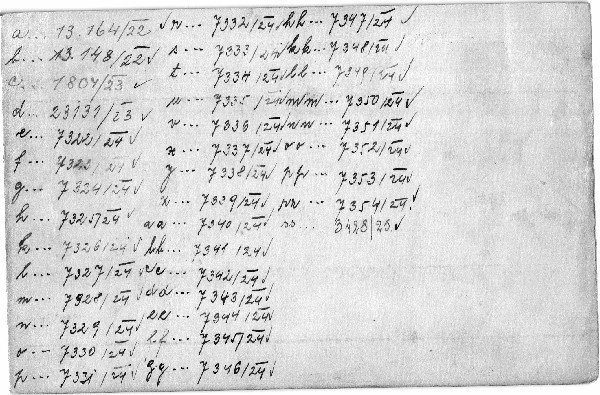 a... 13.164/22 ✓
b... 13.148/22 ✓
c... 1804/23 ✓
d... 23131/23 ✓
e... 7322/24 ✓
f... 7323/24 ✓
g... 7324/24 ✓
h... 7325/24 ✓
k... 7326/24 ✓
l... 7327/24 ✓
m... 7328/24 ✓
n... 7329/24 ✓
o... 7330/24 ✓
p... 7331/24 ✓
r... 7332/24 ✓
s... 7333/24 ✓
t... 7334/24 ✓
u... 7335/24 ✓
v... 7336/24 ✓
x... 7337/24 ✓
y... 7338/24 ✓
z... 7339/24 ✓
aa... 7340/24 ✓
bb... 7341/24 ✓
cc... 7342/24 ✓
dd... 7343/24 ✓
ee... 7344/24 ✓
ff... 7345/24 ✓
gg... 7346/24 ✓
hh... 7347/24 ✓
kk... 7348/24 ✓
ll... 7349/24 ✓
mm... 7350/24 ✓
nn... 7351/24 ✓
oo... 7352/24 ✓
pp... 7353/24 ✓
rr... 7354/24 ✓
ss... 3428/25 ✓